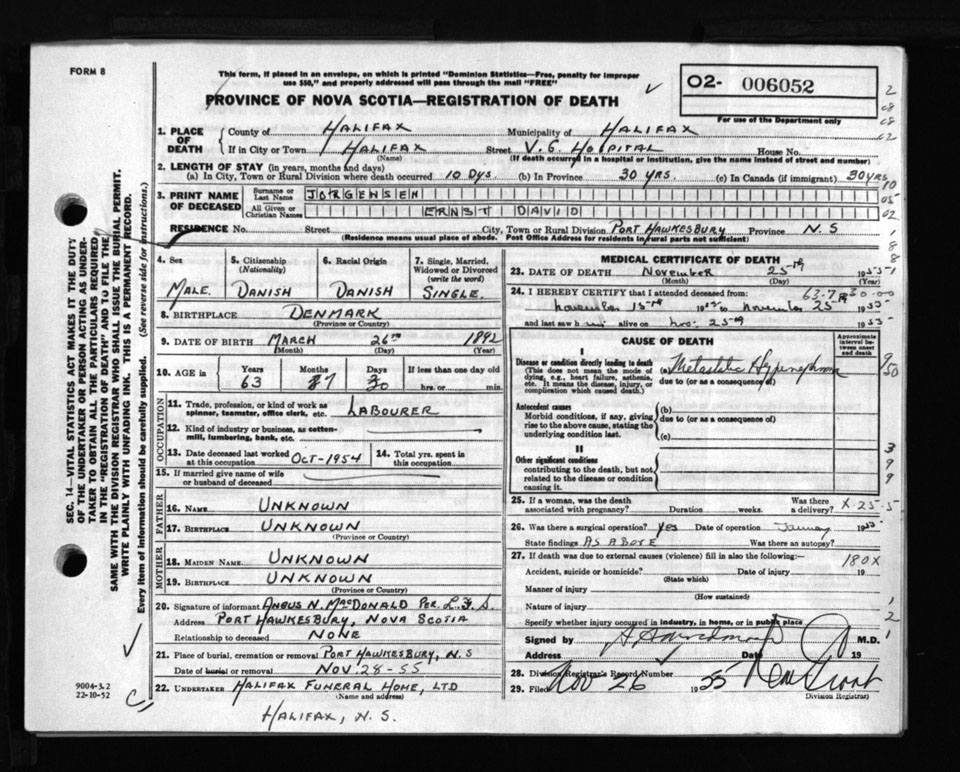 FORM 8
This form, if placed in an envelope, on which is printed "Dominion Statistics—Free, penalty for improper
use $50," and properly addressed will pass through the mail "FREE"
PROVINCE OF NOVA SCOTIA—REGISTRATION OF DEATH
O2- 006052
For use of the Department only
1. PLACE OF DEATH
County of HALIFAX Municipality of HALIFAX
If in City or Town HALIFAX Street V.G. HOSPITAL House No.
(Name) (If death occurred in a hospital or institution, give the name instead of street and number)
2. LENGTH OF STAY (in years, months and days)
(a) In City, Town or Rural Division where death occurred 10 Dys. (b) In Province 30 YRS. (c) In Canada (if immigrant) 30 YRS
3. PRINT NAME OF DECEASED
Surname or Last Name JORGENSEN
All Given or Christian Names ERNST DAVID
RESIDENCE No. Street City, Town or Rural Division PORT HAWKESBURY Province N.S
(Residence means usual place of abode. Post Office Address for residents in rural parts not sufficient)
4. Sex
MALE.
5. Citizenship
(Nationality)
DANISH
6. Racial Origin
DANISH
7. Single, Married, Widowed or Divorced
(write the word)
SINGLE.
8. BIRTHPLACE DENMARK
(Province or Country)
9. DATE OF BIRTH MARCH 26TH 1892
(Month) (Day) (Year)
10. AGE in
Years Months Days If less than one day old
63 7 30 hrs. or min.
OCCUPATION
11. Trade, profession, or kind of work as
spinner, teamster, office clerk, etc. LABOURER
12. Kind of industry or business, as cotten-
mill, lumbering, bank, etc.
13. Date deceased last worked
at this occupation OCT-1954
14. Total yrs. spent in
this occupation
15. If married give name of wife
or husband of deceased
FATHER
16. NAME UNKNOWN
17. BIRTHPLACE UNKNOWN
(Province or Country)
MOTHER
18. MAIDEN NAME UNKNOWN
19. BIRTHPLACE UNKNOWN
(Province or Country)
20. Signature of informant ANGUS N. MACDONALD PER.
Address PORT HAWKESBURY, NOVA SCOTIA
Relationship to deceased NONE
21. Place of burial, cremation or removal PORT HAWKESBURY, N.S
Date of burial or removal NOV. 28-55
22. UNDERTAKER HALIFAX FUNERAL HOME, LTD
(Name and address)
HALIFAX, N.S.
MEDICAL CERTIFICATE OF DEATH
23. DATE OF DEATH November 25th 1955
(Month) (Day) (Year)
24. I HEREBY CERTIFY that I attended deceased from:
November 15th 1955 to November 25 1955
and last saw him alive on Nov. 25th 1955
CAUSE OF DEATH
Approximate interval between onset and death
I
Disease or condition directly leading to death
(This does not mean the mode of
dying, e.g., heart failure, asthenia,
etc. It means the disease, injury, or
complication which caused death.)
(a) Metastatic Hypernephroma
due to (or as a consequence of)
Antecedent causes
Morbid conditions, if any, giving
rise to the above cause, stating the
underlying condition last.
(b)
due to (or as a consequence of)
(c)
II
Other significant conditions
contributing to the death, but not
related to the disease or condition
causing it.
25. If a woman, was the death
associated with pregnancy? Duration weeks. Was there
a delivery? X-25-5
26. Was there a surgical operation? Yes Date of operation January 1955.
State findings AS ABOVE Was there an autopsy?
27. If death was due to external causes (violence) fill in also the following:—
180X
Accident, suicide or homicide? Date of injury 19
(State which)
Manner of injury
(How sustained)
Nature of injury
Specify whether injury occurred in industry, in home, or in public place
Signed by M.D.
Address Date 19
28. Division Registrar's Record Number
29. Filed Nov 26 1955
Division Registrar)
SEC. 14—VITAL STATISTICS ACT MAKES IT THE DUTY
OF THE UNDERTAKER OR PERSON ACTING AS UNDER-
TAKER TO OBTAIN ALL THE PARTICULARS REQUIRED
IN THE "REGISTRATION OF DEATH" AND TO FILE THE
SAME WITH THE DIVISION REGISTRAR WHO SHALL ISSUE THE BURIAL PERMIT.
WRITE PLAINLY WITH UNFADING INK. THIS IS A PERMANENT RECORD.
Every item of information should be carefully supplied. (See reverse side for instructions.)
9004-3.2
22-10-52